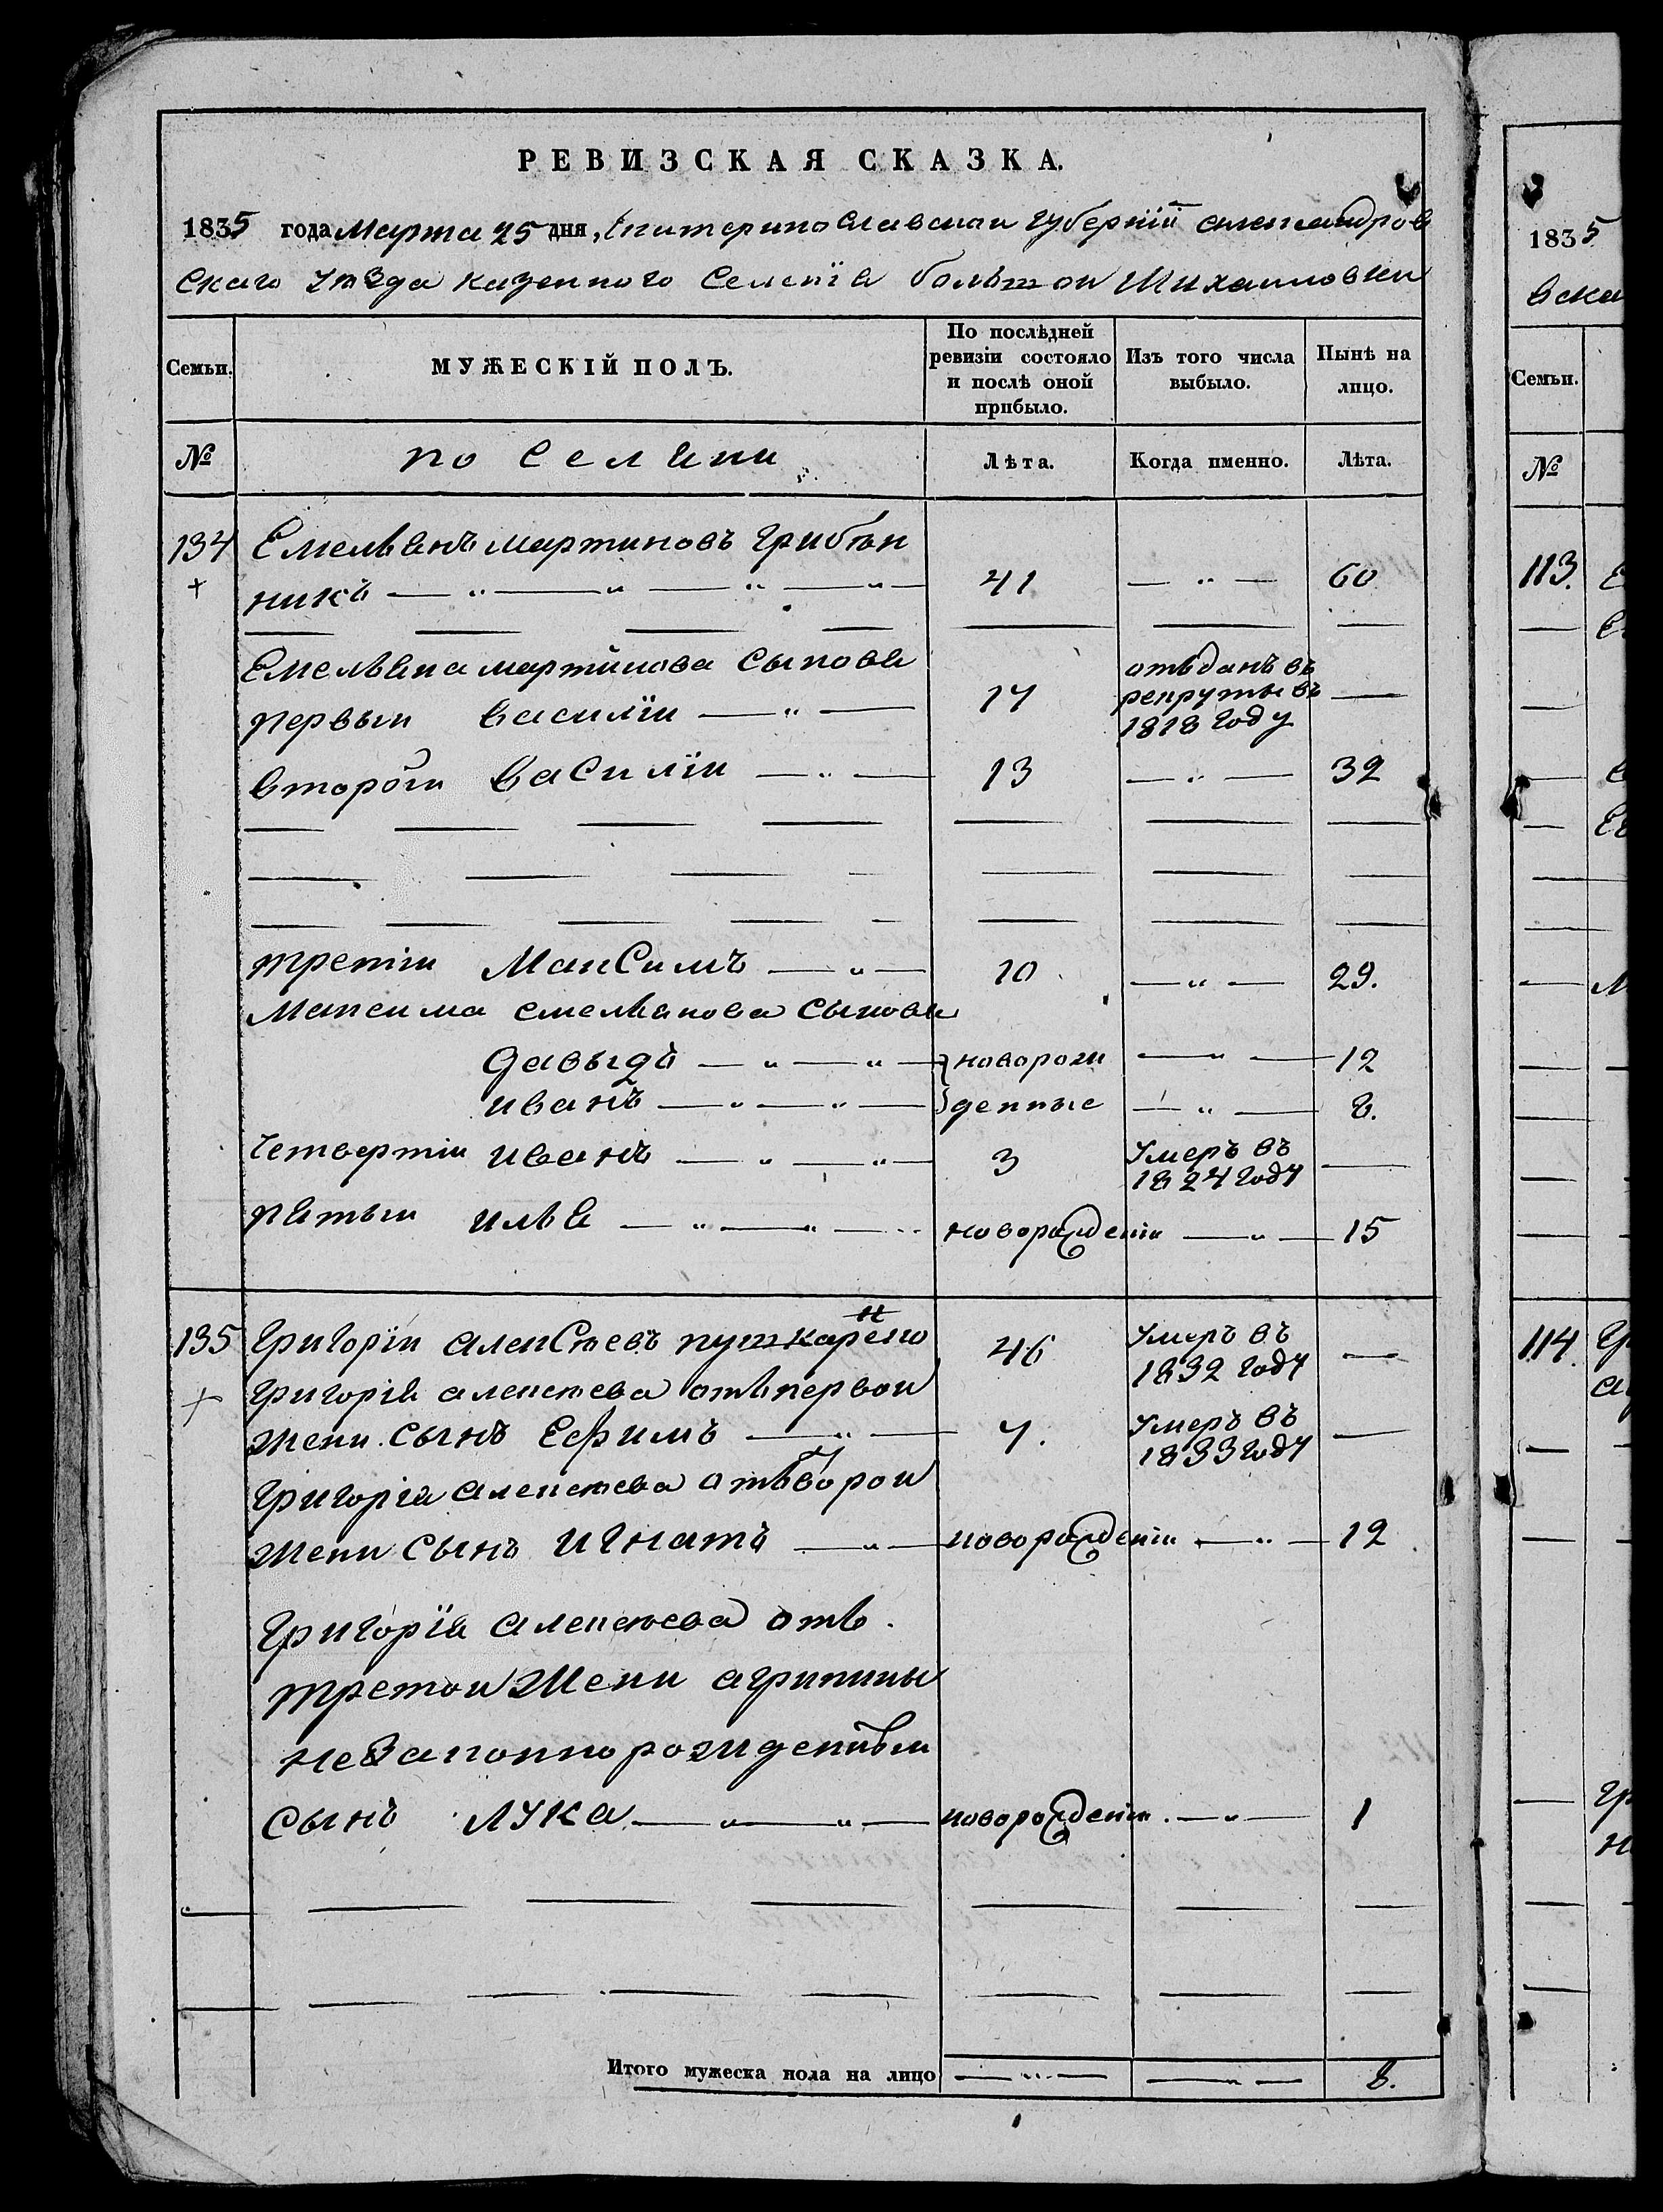 РЕВИЗСКАЯ СКАЗКА.
1835 года Марта 25 дня, Екатеринославскои губернїи александров
скаго уѣзда казенного Селенїя большои Михаиловки
Семьи. МУЖЕСКІЙ ПОЛЪ. По послѣдней ревизіи состояло и послѣ оной прибыло. Изъ того числа выбыло. Нынѣ на лицо.
№ Лѣта. Когда именно. Лѣта.
134 Емельянъ мартиновъ грибѣн
никъ — " — " — " — " — 41 — " — 60
Емельяна мартинова сыновя
первыи василїи — " — 17 отъданъ въ рекруты въ 1818 году —
вторóи василїи — " — 13 — " — 32
третіи Максимъ — " — 10 — " — 29.
Максима емельянова сыновя
давыдъ — " — " — новорож — " — 12
иванъ — " — " — денные — " — 8.
четвертіи иванъ — " — " — 3 умеръ въ 1824 году —
пятыи илья — " — " — новорожденіи — " — 15
135 григорїи алексѣевъ пушкарено 46 умеръ въ 1832 году —
григорія алексѣева отъ первои
жени сынъ Ефимъ — " — 7. умеръ въ 1833 году —
григорія алексѣева отъ второи
жени сынъ игнатъ — " — новорожденіи — " — 12
григорїя алексѣева отъ
третои жени агрипины
незаконно рожденъ
сынъ лука — " — " — новорожденіи — " — 1
Итого мужеска пола на лицо — " — — " — 8.
113.
114.
1835
вска
Семьи.
№